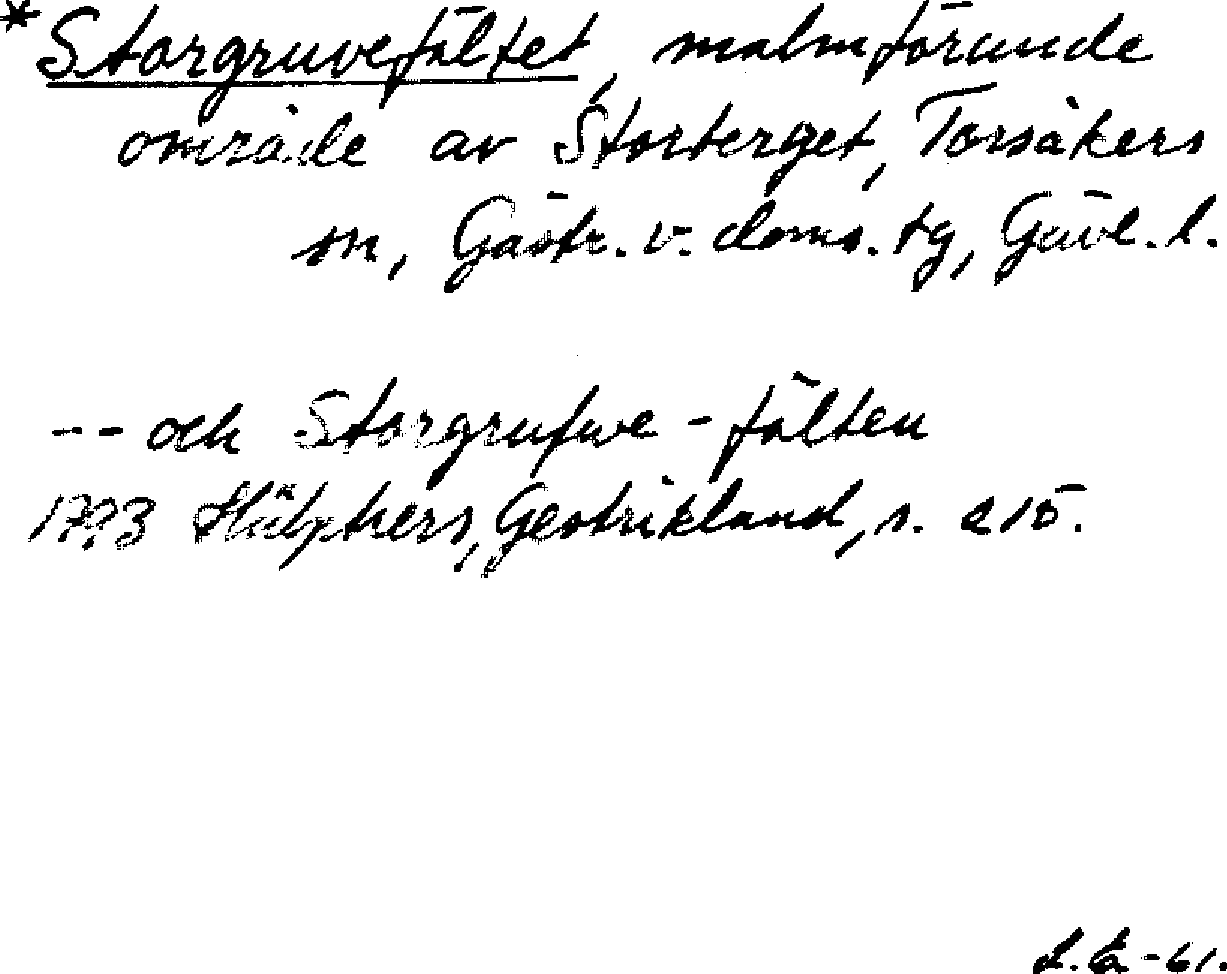 *Storgruvefältet, malmförande
område av Storberget, Torsåkers
sn, Gästr. v. doms. tg, Gävl. l.
-- och Storgrufwe-fälten
1793 Hülphers, Gestrikland, s. 215.
-61.